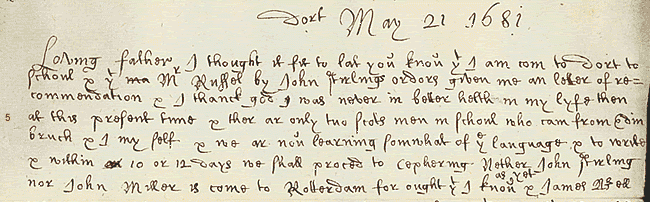 Dort May 21 1681
Loving father I thought it fit to lat you know yt I am com to dort to
school & yt Mr Russel by John Strlings ordors given me an letter of re=
commendation & I thanck god I was never in better helth in my lyfe then
5 at this present time & ther ar only tuo scots men in school who cam from Edin
bruch & I my self & we ar nou learning somwhat of ye language & to write
& within 10 or 12 days we shall proced to Cephering Nether John Strling
as yet
nor John Miller is come to Rotterdam for ought yt I knou & James